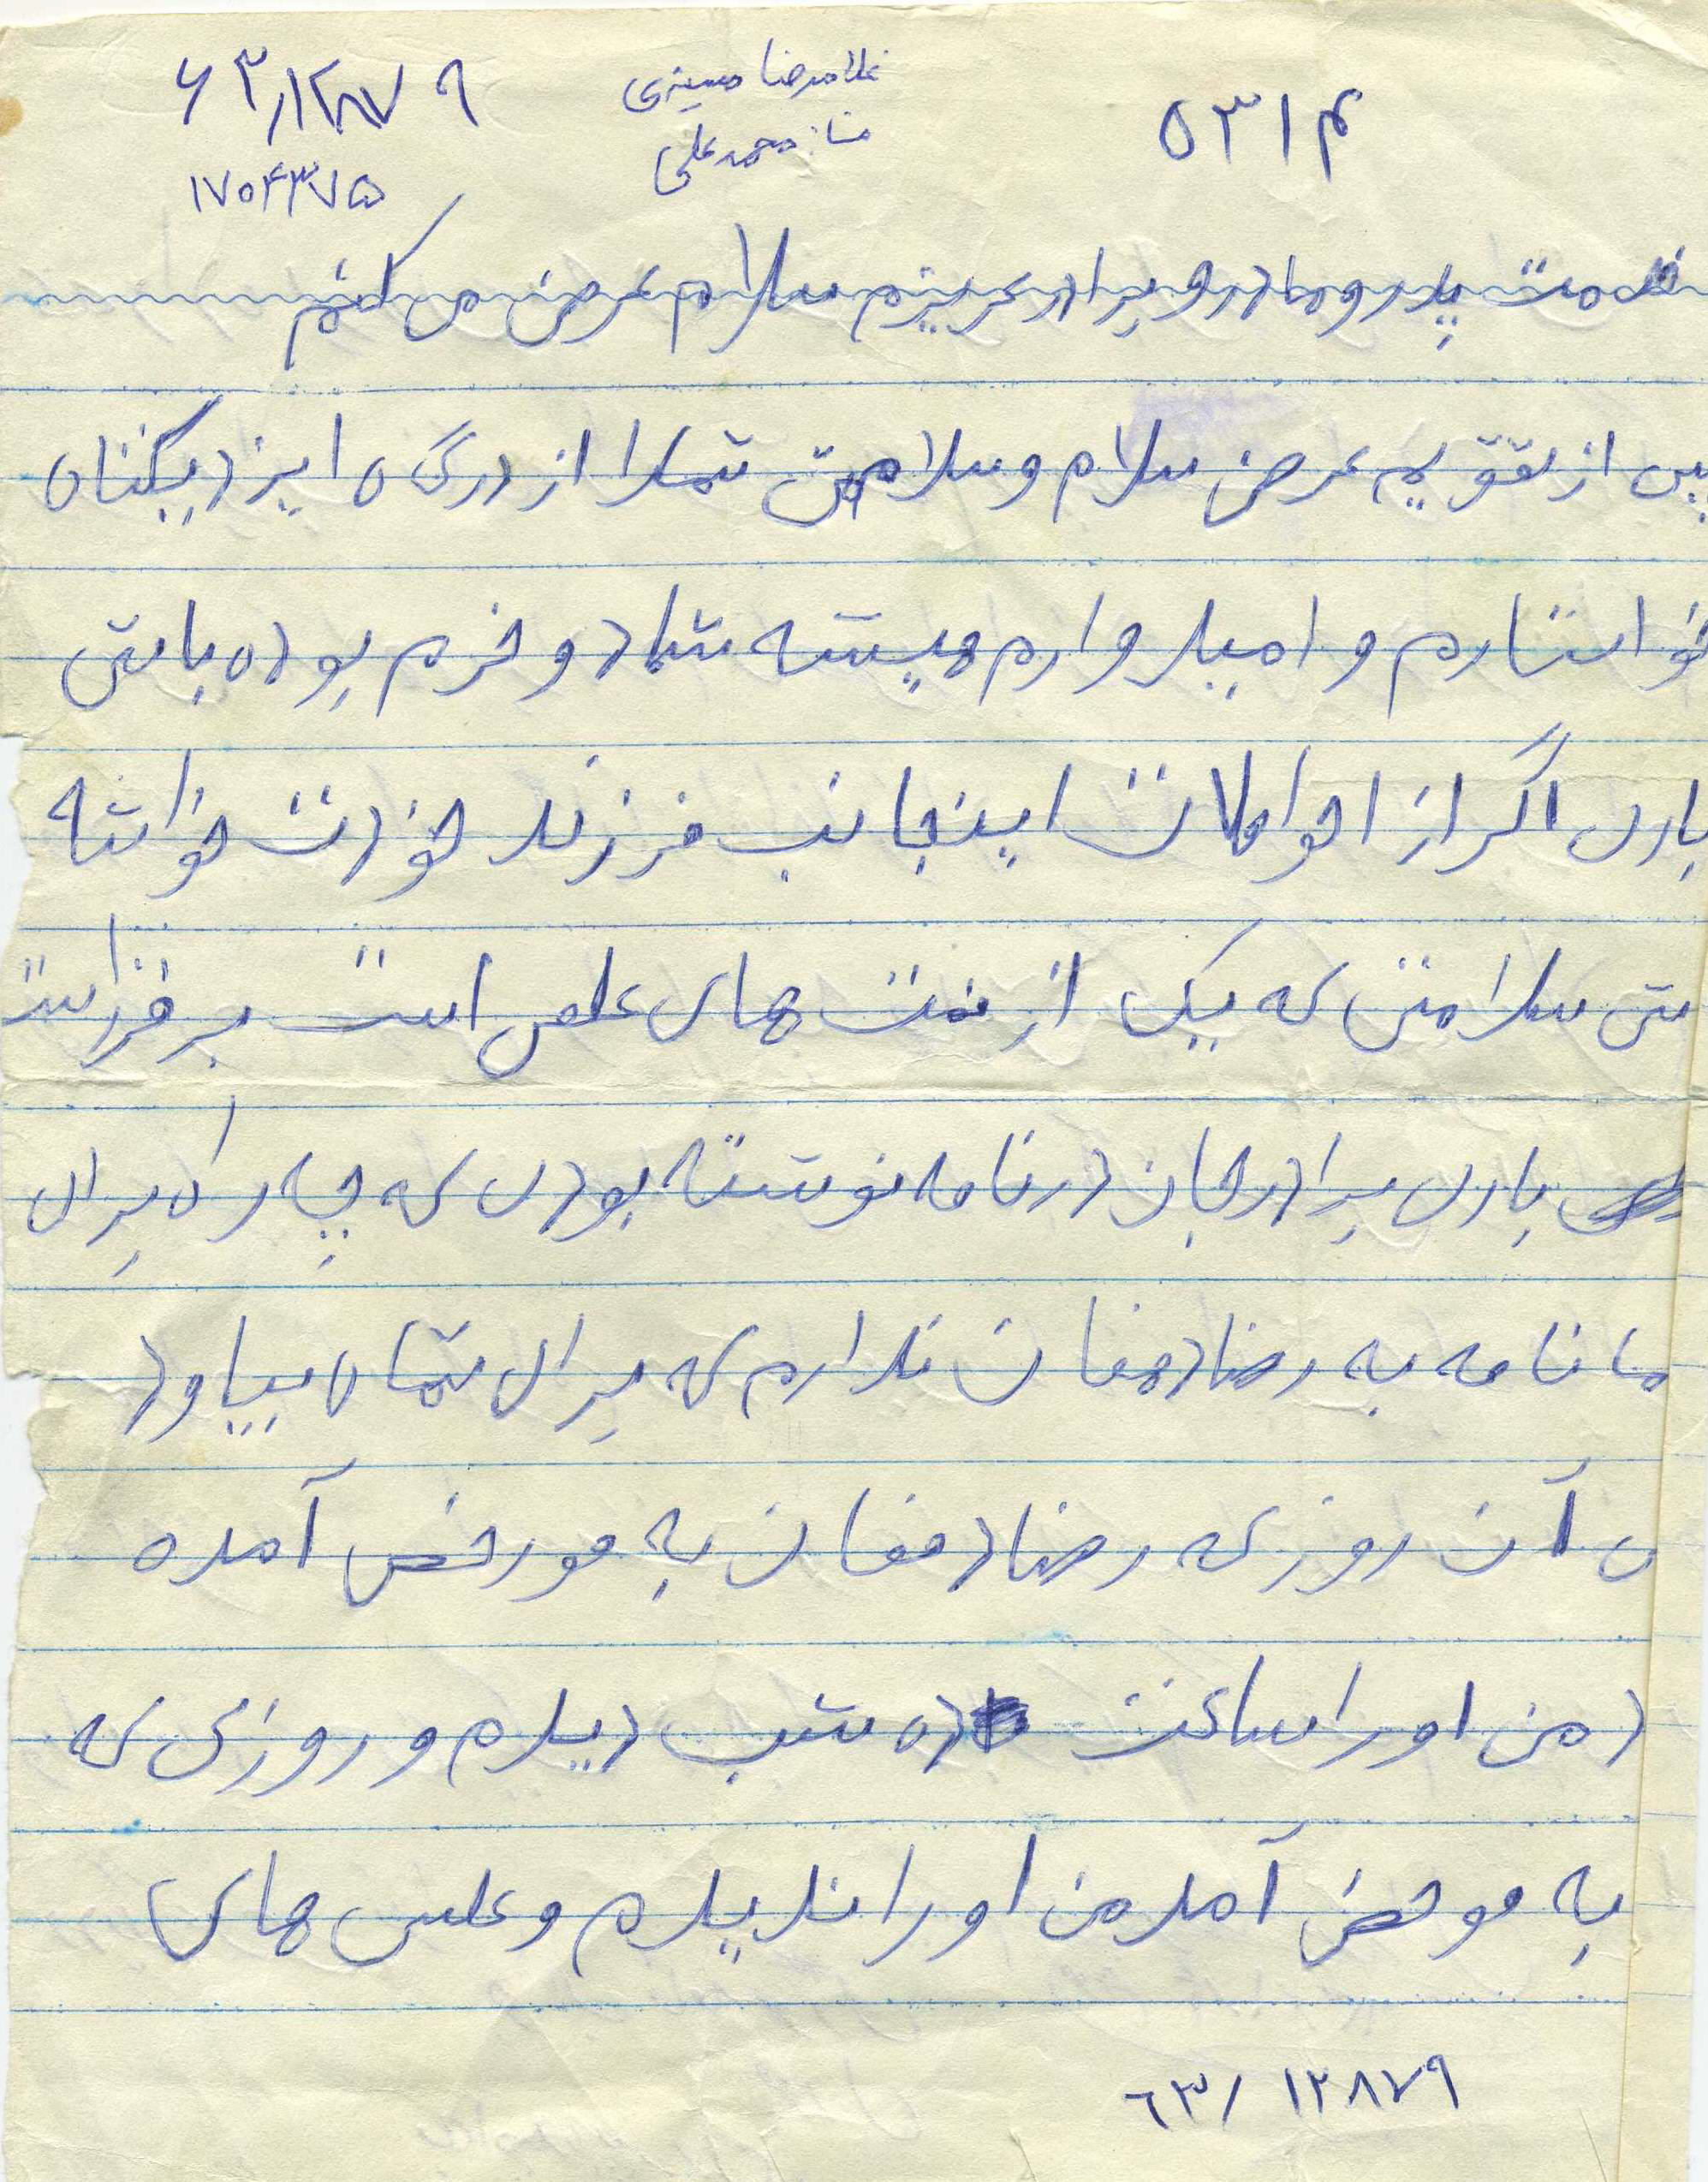 ۵۳۱۴
غلامرضا حسینی
محمد علی
۶۳/۱۲۸۷۹
۱۷۰۴۳۷۵
خدمت پدر و مادر و برادر عزیزم سلام عرض می کنم
پس از تقویم عرض سلام و سلامتی شما را از درگاه ایزد یکتا
خواستارم و امیدوارم همیشه شاد و خرم بوده باشی
باری اگر از احوالات اینجانب فرزند خودت خواسته
شی سلامتی که یک از نمت های علی است برقرار است
باری برادر جان در نامه نوشته بودی که چه راه برای
ما نامه به رضا دهقان ندارم که برای شما بیاورد
آن روزی که رضا دهقان به مورخصی آمده
د من او را ساعت ده شب دیدم و روزی که
به موخصی آمد من او را ندیدم و عکس های
۶۳/ ۱۲۸۷۹